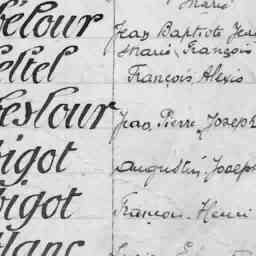 Marie
bélour Jean Baptiste Jea
Marie, François
eltel François Alexis
eslour Jean Pierre Joseph
bigot Augustin Joseph
bigot François Henri
lanc